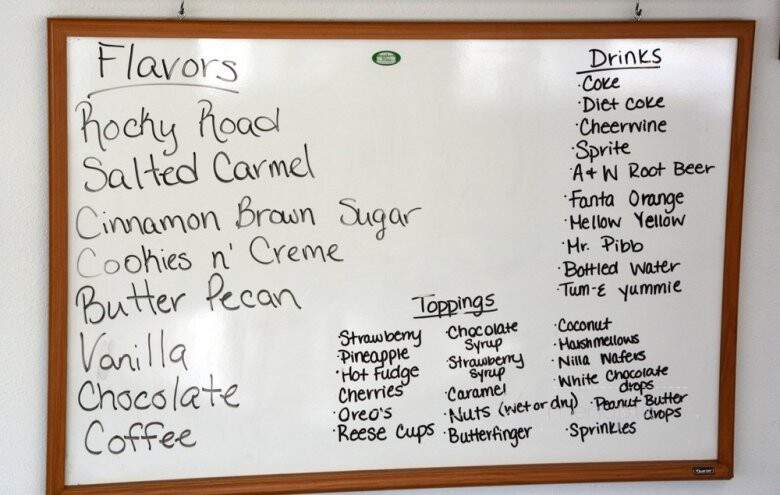 Flavors
Rocky Road
Salted Carmel
Cinnamon Brown Sugar
Cookies n' Creme
Butter Pecan
Vanilla
Chocolate
Coffee
Drinks
·Coke
·Diet Coke
·Cheerwine
·Sprite
·A+W Root Beer
·Fanta Orange
·Mellow Yellow
·Mr. Pibb
·Bottled Water
·Tum-E yummie
Toppings
·Strawberry
·Pineapple
·Hot Fudge
Cherries
·Oreo's
·Reese Cups
·Chocolate
Syrup
·Strawberry
Syrup
·Caramel
·Nuts (wet or dry)
·Butterfinger
·Coconut
·Marshmellows
·Nilla Wafers
·White Chocolate
drops
·Peanut Butter
drops
·Sprinkles